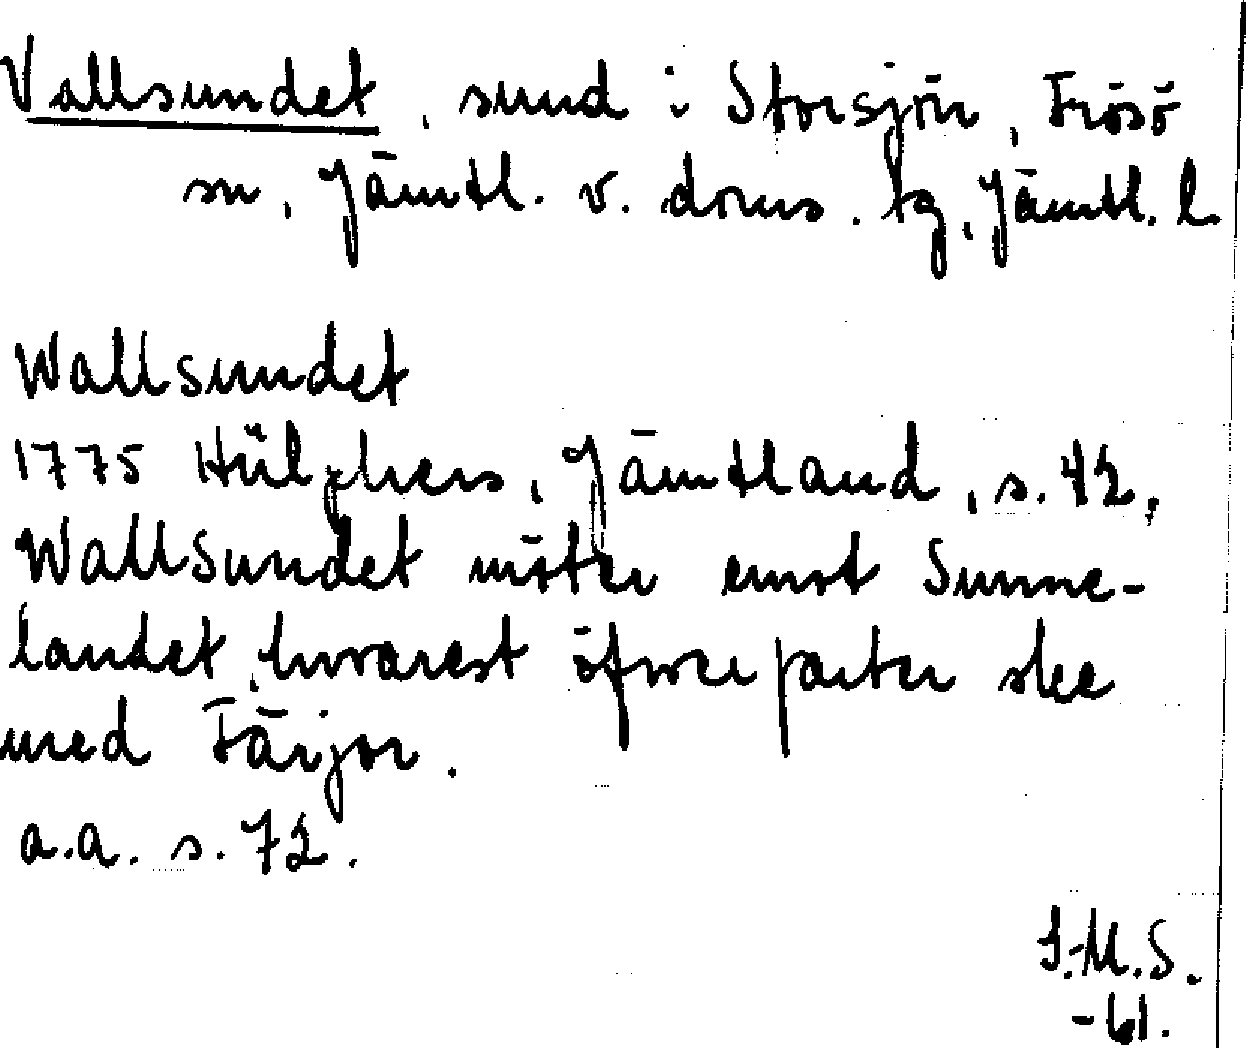 Vallsundet, sund i Storsjön, Frösö
sn, Jämtl. v. doms. tg, Jämtl. l.
Wallsundet
1775 Hülphers, Jämtland, s. 42,
Wallsundet möter emot Sunne-
landet, hvarest öfwerfarter ske
med Färjor.
a.a. s. 72.
I.M.S.
-61.